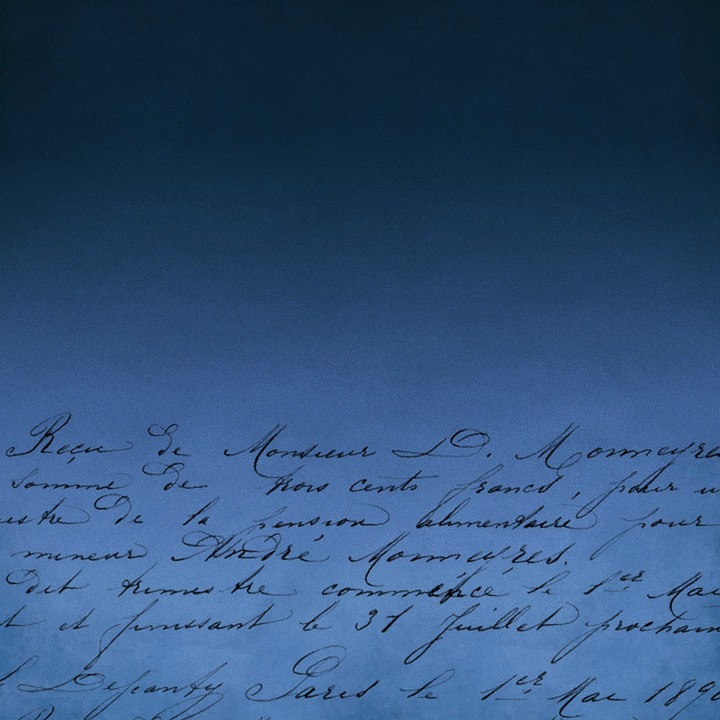 Reçu de Monsieur D. Monneyres
somme de trois cents francs, pour u
estre de la pension alimentaire pour
mineur André Monneyres.
Dit trimestre commence le 1er Mai
t et finissant le 31 Juillet prochain
Paris le 1er Mai 1890